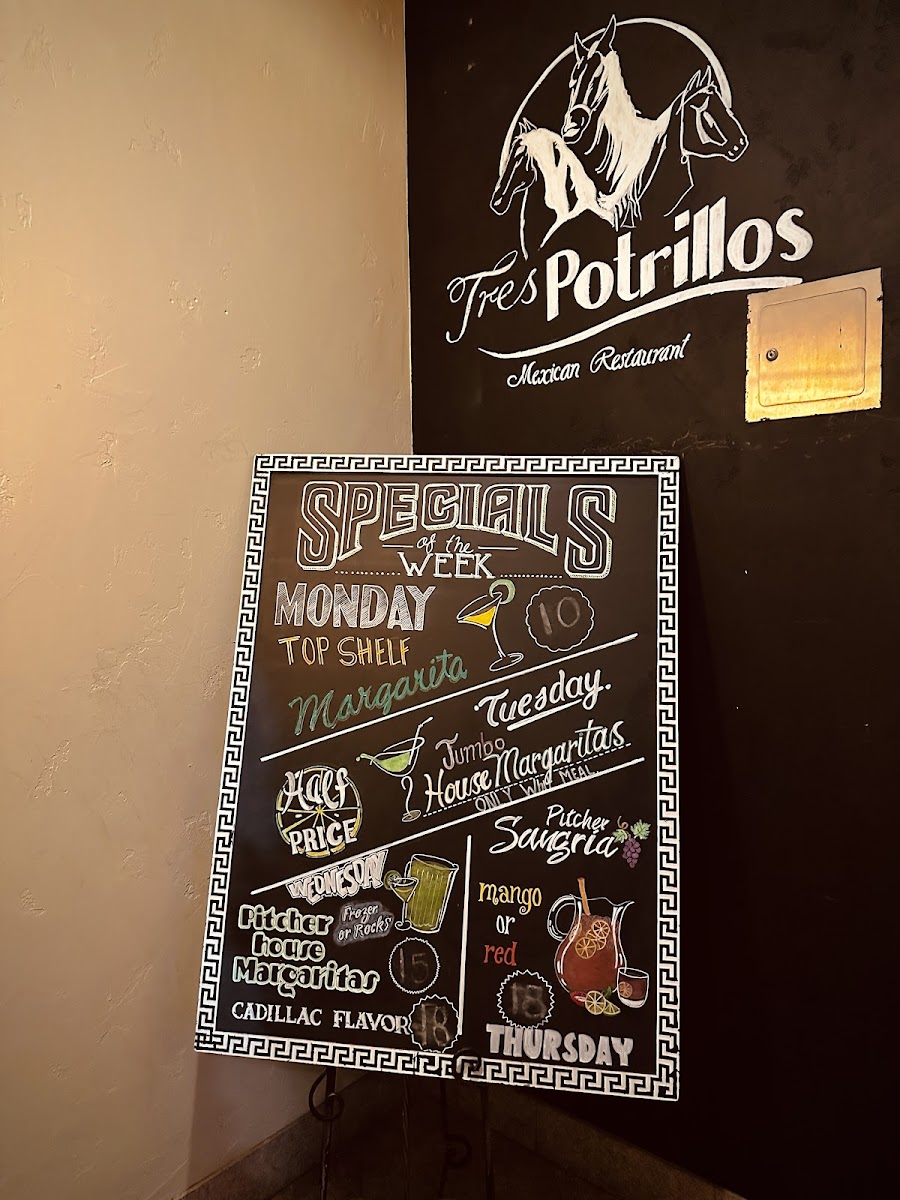 Tres Potrillos
Mexican Restaurant
SPECIALS
of the
WEEK
MONDAY
10
TOP SHELF
Margarita
Tuesday.
Jumbo
House Margaritas
ONLY WITH MEAL
Half
PRICE
WEDNESDAY
Pitcher
house
Margaritas
Frozen
or Rocks
15
CADILLAC FLAVOR 18
Pitcher
Sangria
mango
or
red
18
THURSDAY